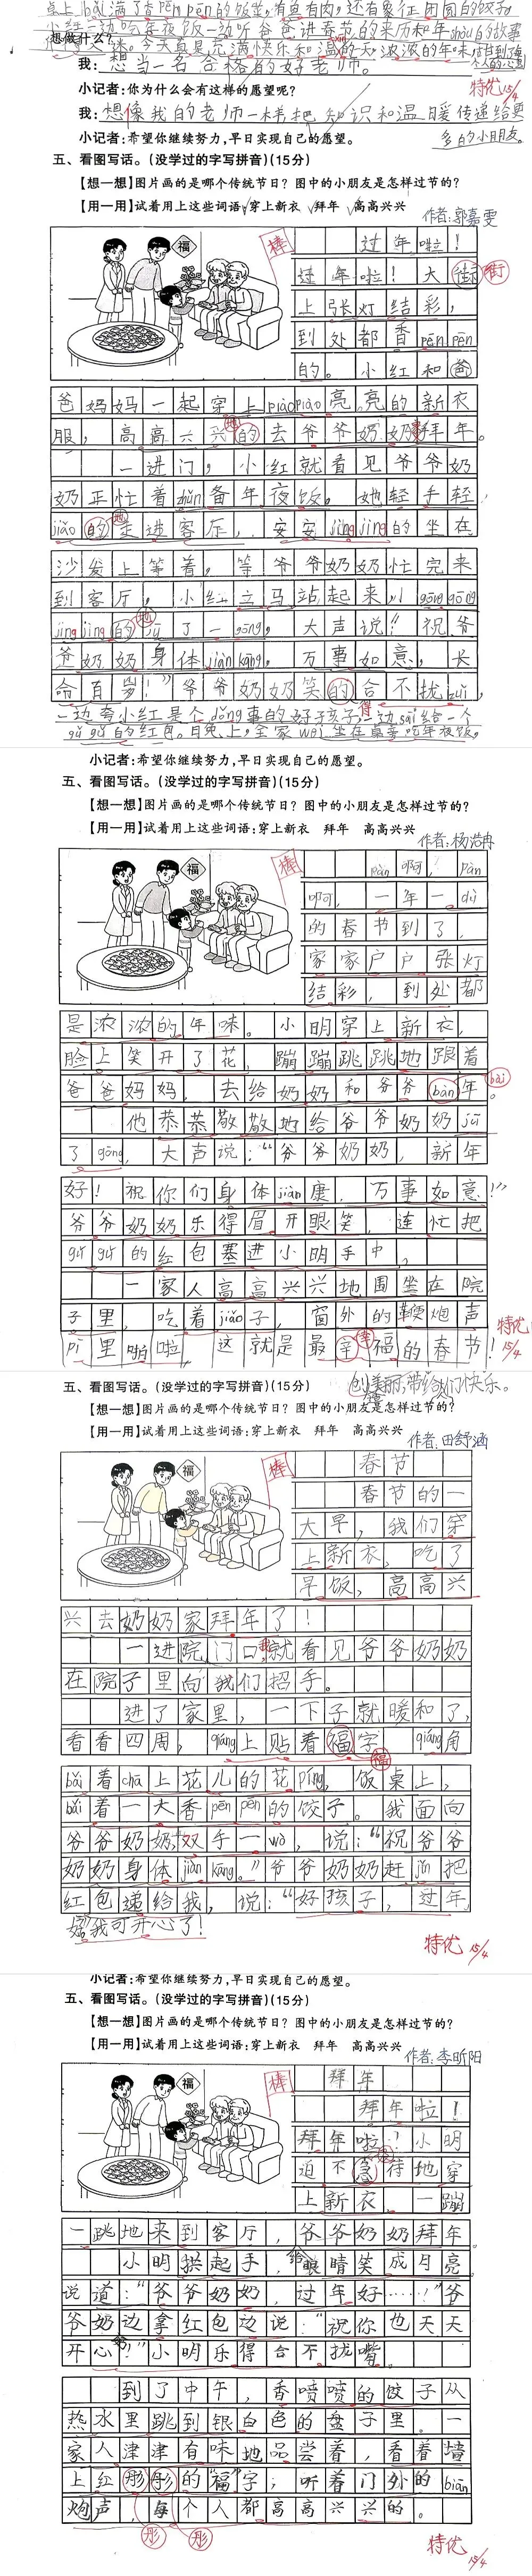 桌上bǎi满了香pēn pēn的饭菜,有鱼有肉,还有象征团圆的饺子。
小红一边吃年夜饭一边听爸爸讲春节的来历和年shòu的故事
想做什么?
我:想当一名合格的好老师。
小记者:你为什么会有这样的愿望呢?
特优 15/4
我:想像我的老师一样把知识和温暖传递给更
多的小朋友。
小记者:希望你继续努力,早日实现自己的愿望。
五、看图写话。(没学过的字写拼音)(15分)
【想一想】图片画的是哪个传统节日?图中的小朋友是怎样过节的?
【用一用】试着用上这些词语:穿上新衣 拜年 高高兴兴
作者:郭嘉雯
福
棒
过年啦!
过年啦!大街 街
上张灯结彩,
到处都香pēn pēn
的。小红和爸
爸妈妈一起穿上piàopiào亮亮的新衣
服,高高兴兴的去爷爷奶奶家拜年。
地
一进门,小红就看见爷爷奶
奶正忙着zhǔn备年夜饭。她轻手轻
jiǎo的走进客厅,安安jìng jìng的坐在
地
沙发上等着,等爷爷奶奶忙完来
到客厅,小红立马站起来,gōng gōng
jìng jìng的jū了一gōng,大声说:“祝爷
地
爷奶奶身体jiàn kāng,万事如意,长
命百岁!”爷爷奶奶笑的合不拢zuǐ,
得
一边夸小红是个dǒng事的好孩子,一边sāi给一个
gǔ gǔ的红包。月免上,全家wéi坐在桌旁吃年夜饭,
小记者:希望你继续努力,早日实现自己的愿望。
五、看图写话。(没学过的字写拼音)(15分)
【想一想】图片画的是哪个传统节日?图中的小朋友是怎样过节的?
【用一用】试着用上这些词语:穿上新衣 拜年 高高兴兴
福
棒
pàn啊,pàn
啊,一年一dù
的春节到了,
家家户户张灯
结彩,到处都
是浓浓的年味。小明穿上新衣,
脸上笑开了花,蹦蹦跳跳地跟着
爸爸妈妈,去给奶奶和爷爷bàn年。
bài
他恭恭敬敬地给爷爷奶奶jū
了gōng,大声说:“爷爷奶奶,新年
好!祝你们身体jiàn康,万事如意!”
爷爷奶奶乐得眉开眼笑,连忙把
gǔ gǔ的红包塞进小明手中,
一家人高高兴兴地围坐在院
子里,吃着jiǎo子,窗外的鞭炮声
pī里啪啦,这就是最辛福的春节!
幸
特优 15/4
五、看图写话。(没学过的字写拼音)(15分)
【想一想】图片画的是哪个传统节日?图中的小朋友是怎样过节的?
【用一用】试着用上这些词语:穿上新衣 拜年 高高兴兴
作者:田舒涵
福
棒
春节
春节的一
大早,我们穿
上新衣,吃了
早饭,高高兴
兴去奶奶家拜年了!
一进院门口,就看见爷爷奶奶
我
在院子里向我们招手。
进了家里,一下子就暖和了,
看看四周,qiáng上贴着福字,qiáng角
福
bǎi着chā上花儿的花píng,饭桌上,
bǎi着一大香pēn pēn的饺子。我面向
爷爷奶奶,双手一wò,说:“祝爷爷
奶奶身体jiàn kāng。”爷爷奶奶赶jǐn把
红包递给我,说:“好孩子,过年
好”我可开心了!
特优 15/4
小记者:希望你继续努力,早日实现自己的愿望。
五、看图写话。(没学过的字写拼音)(15分)
【想一想】图片画的是哪个传统节日?图中的小朋友是怎样过节的?
【用一用】试着用上这些词语:穿上新衣 拜年 高高兴兴
作者:李昕阳
福
棒
拜年
拜年啦!
拜年啦!小明
迫不急待地穿
上新衣,一蹦
一跳地来到客厅,给爷爷奶奶拜年。
小明拱起手,眼睛笑成月亮,
说道:“爷爷奶奶,过年好……!”爷
爷奶奶边拿红包边说:“祝你也天天
开心!”小明乐得合不拢嘴。
到了中午,香喷喷的饺子从
热水里跳到银白色的盘子里。一
家人津津有味地品尝着,看着墙
上红彤彤的“福”字,听着门外的biān
炮声,每个人都高高兴兴的。
彤 彤
特优 15/4